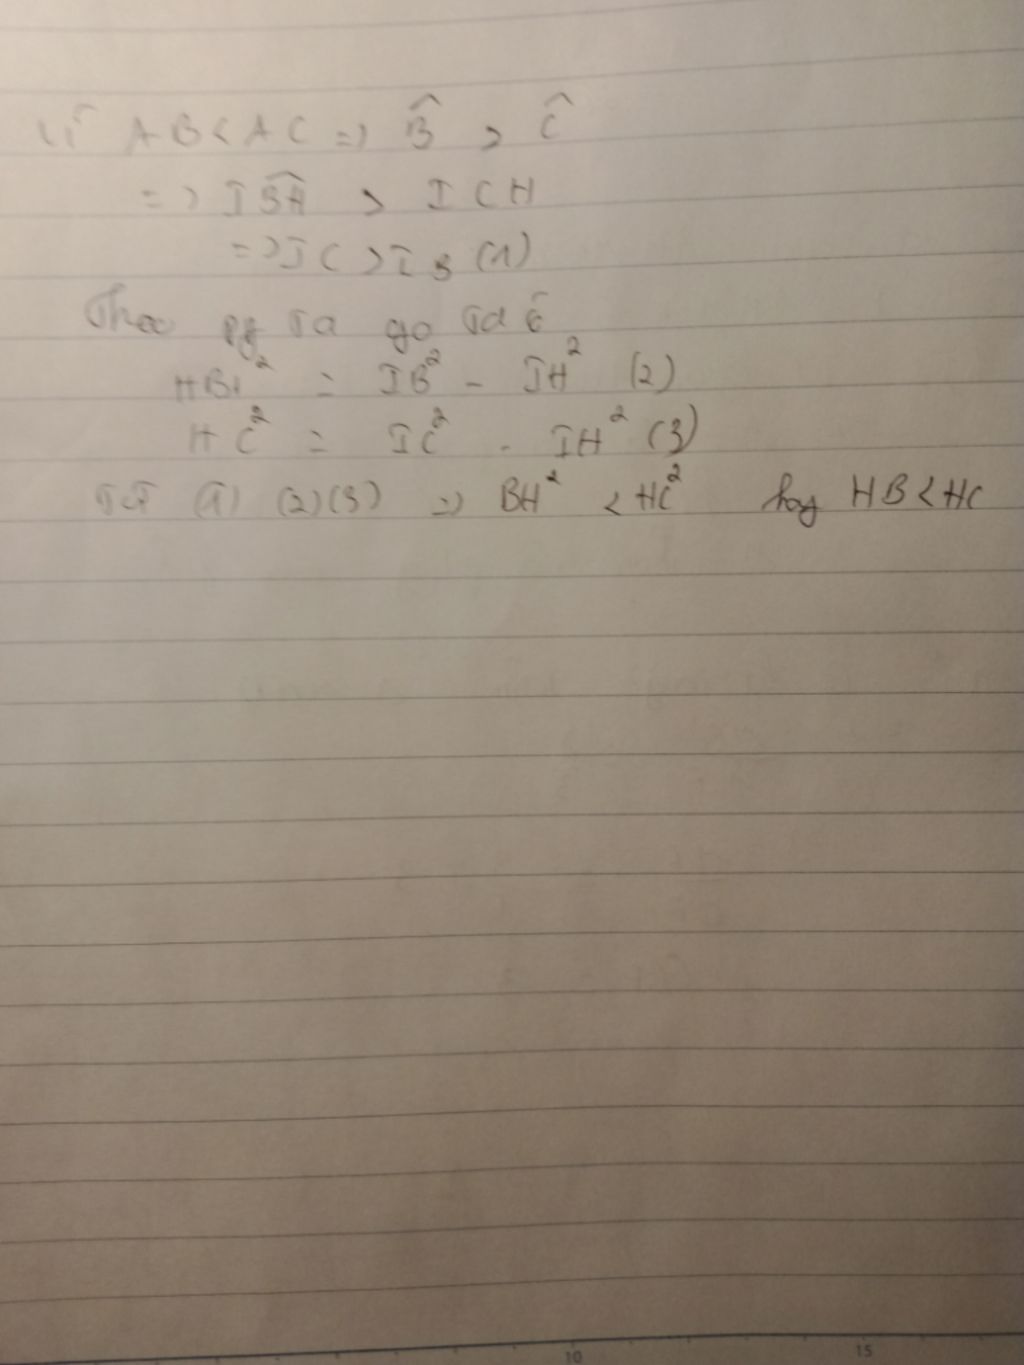 Vì AB < AC => B̂ > Ĉ
=> IB̂H > ICH
=> IC > IB (1)
Theo py Ta go Ta có
HB² = IB² - IH² (2)
HC² = IC² - IH² (3)
Từ (1) (2) (3) => BH² < HC² hay HB < HC
10 15